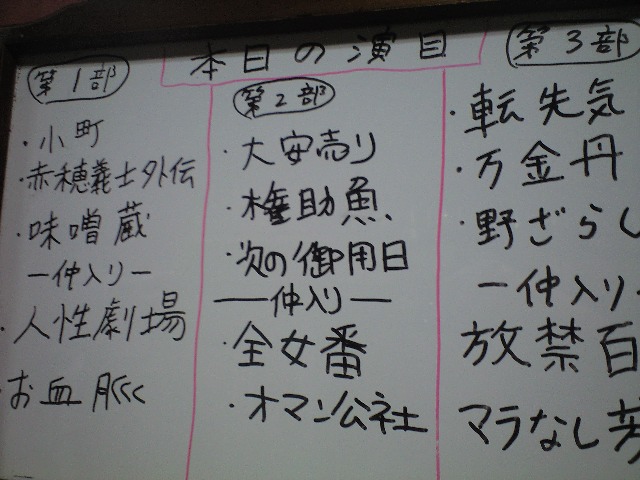 本日の演目
第1部
・小町
・赤穂義士外伝
・味噌蔵
ー仲入りー
・人性劇場
・お血脈
第2部
・大安売り
・権助魚
・次の御用日
ー仲入りー
・全女番
・オマン公社
第3部
・転失気
・万金丹
・野ざらし
ー仲入り
放禁百
マラなし